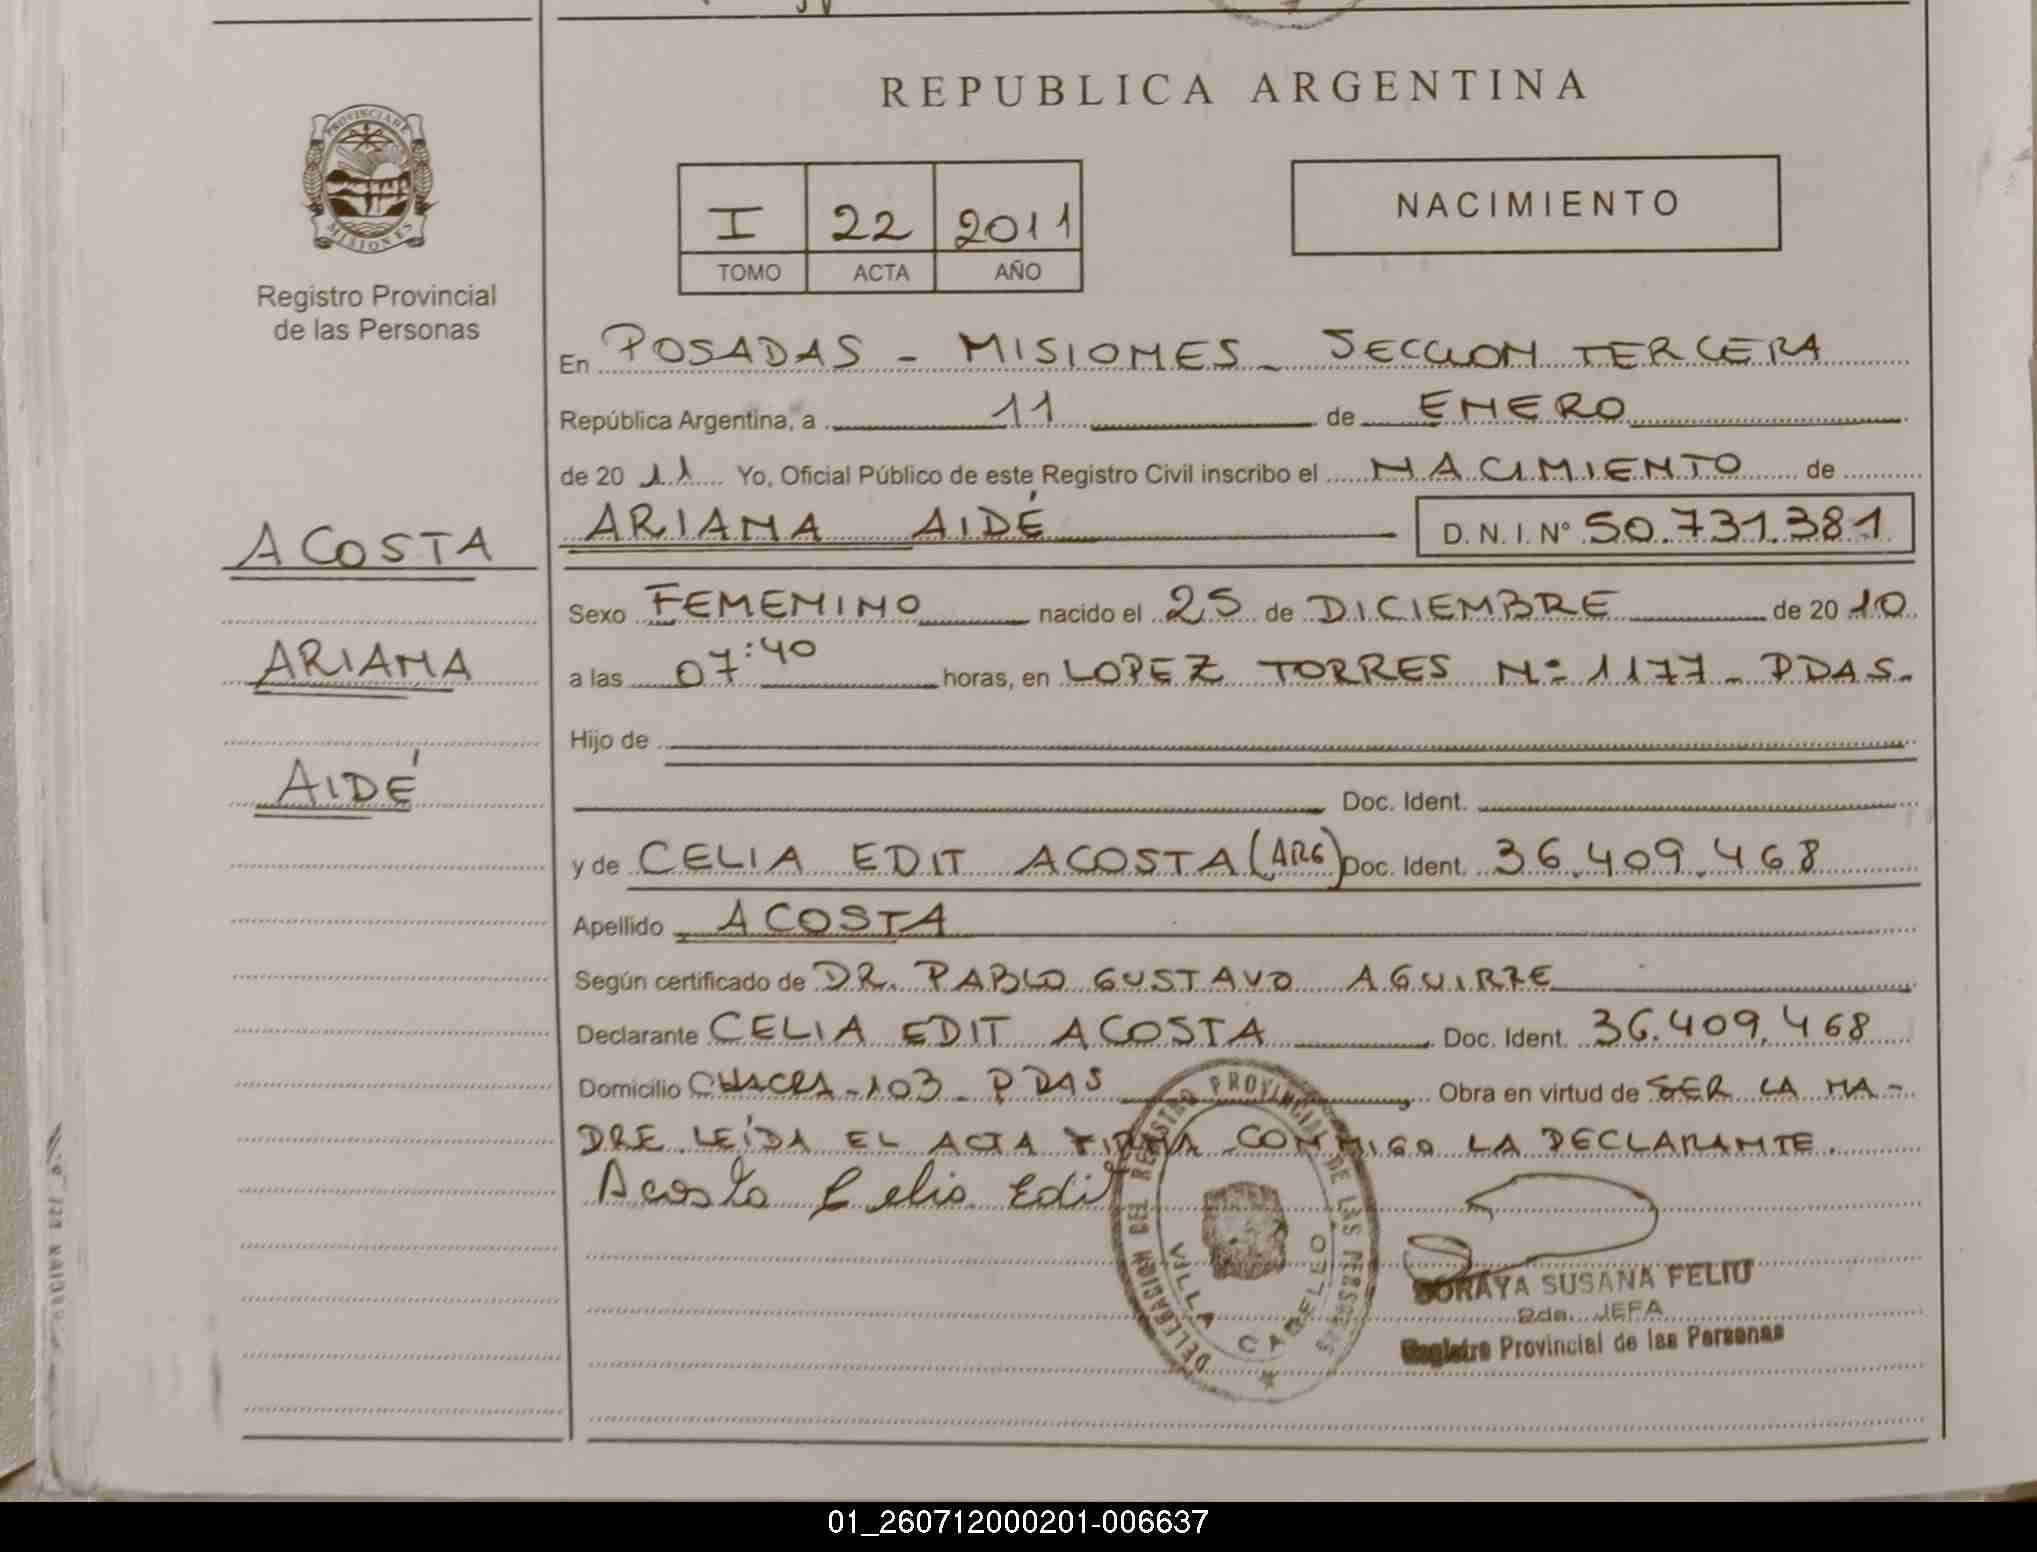 REPUBLICA ARGENTINA
PROVINCIA DE
MISIONES
Registro Provincial
de las Personas
I 22 2011
TOMO ACTA AÑO
NACIMIENTO
En POSADAS - MISIONES - SECCION TERCERA
República Argentina, a 11 de ENERO
de 20 11 Yo, Oficial Público de este Registro Civil inscribo el NACIMIENTO de
ARIANA AIDÉ D. N. I. Nº 50.731.381
ACOSTA
ARIANA
AIDÉ
Sexo FEMENINO nacido el 25 de DICIEMBRE de 20 10
a las 07:40 horas, en LOPEZ TORRES Nº 1177 - PDAS.
Hijo de
Doc. Ident.
y de CELIA EDIT ACOSTA (ARG) Doc. Ident. 36.409.468
Apellido ACOSTA
Según certificado de DR. PABLO GUSTAVO AGUIRRE
Declarante CELIA EDIT ACOSTA Doc. Ident. 36.409.468
Domicilio CHACRA - 103 - PDAS Obra en virtud de SER LA MA-
DRE LEÍDA EL ACTA FIRMA CONMIGO LA DECLARANTE.
Acosta Celia Edit
DELEGACION DEL REGISTRO PROVINCIAL DE LAS PERSONAS
VILLA CABELLO
SORAYA SUSANA FELIU
2da. JEFA
Registro Provincial de las Personas
01_260712000201-006637